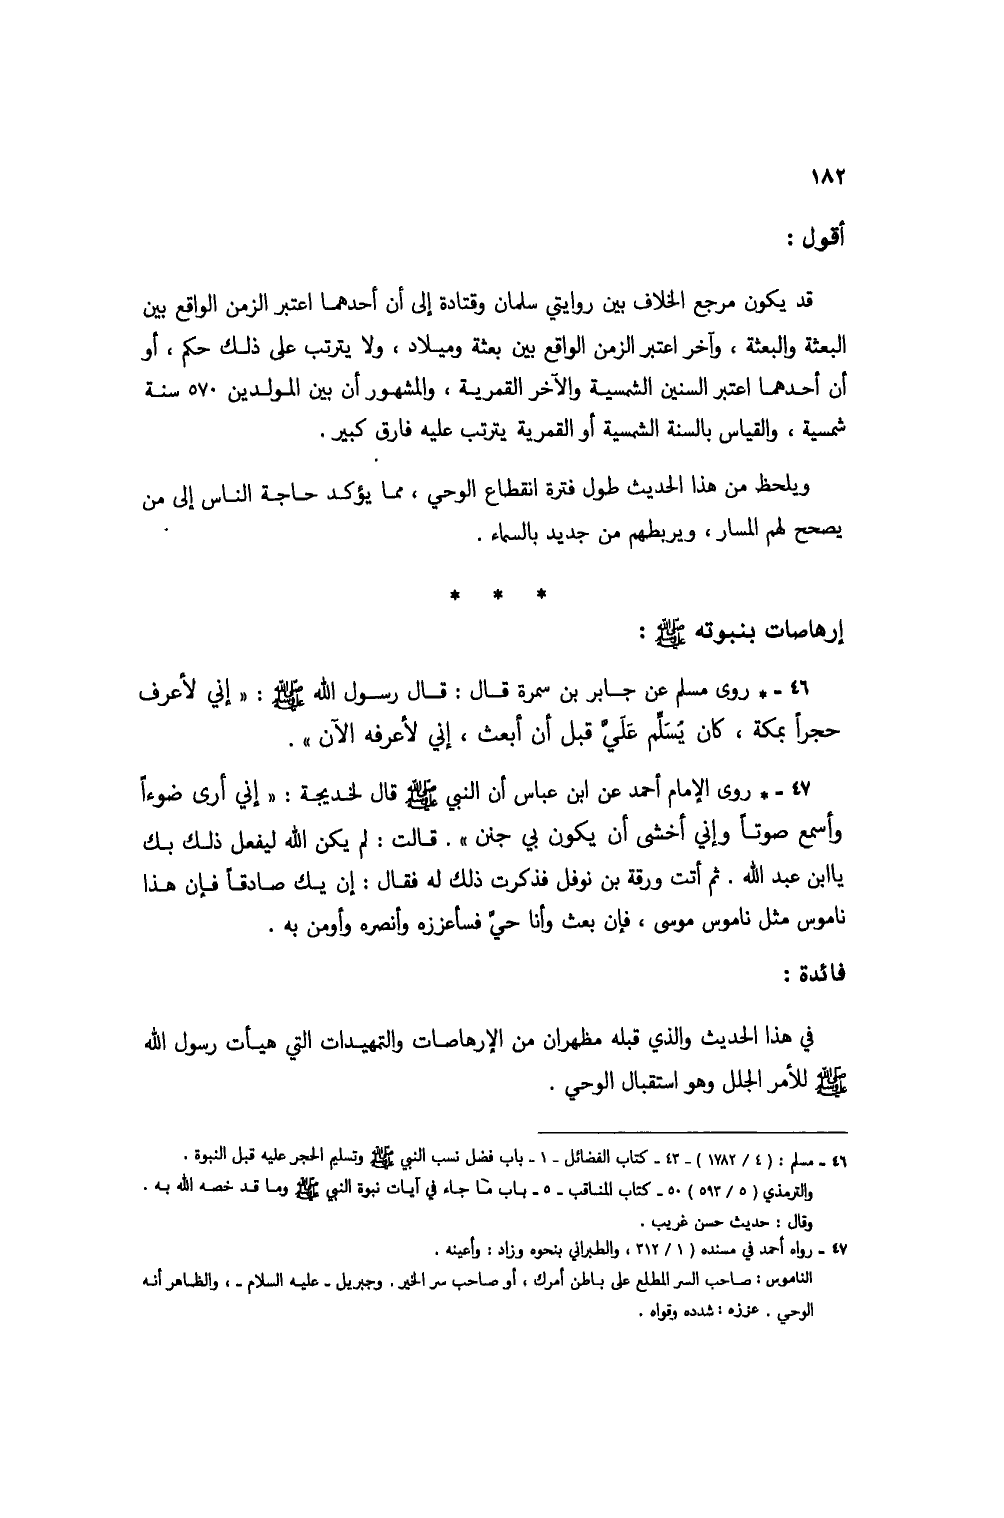 ١٨٢
أقول :
قد يكون مرجع الخلاف بين روايتي سلمان وقتادة إلى أن أحدهما اعتبر الزمن الواقع بين
البعثة والبعثة ، وآخر اعتبر الزمن الواقع بين بعثة وميلاد ، ولا يترتب على ذلك حكم ، أو
أن أحدهما اعتبر السنين الشمسية والآخر القمرية ، والمشهور أن بين المولدين ٥٧٠ سنة
شمسية ، والقياس بالسنة الشمسية أو القمرية يترتب عليه فارق كبير .
ويلحظ من هذا الحديث طول فترة انقطاع الوحي ، مما يؤكد حاجة الناس إلى من
يصحح لهم المسار ، ويربطهم من جديد بالسماء .
* * *
إرهاصات بنبوته ﷺ :
٤٦ - * روى مسلم عن جابر بن سمرة قال : قال رسول الله ﷺ : « إني لأعرف
حجراً بمكة ، كان يُسَلِّم عَلَيَّ قبل أن أبعث ، إني لأعرفه الآن » .
٤٧ - * روى الإمام أحمد عن ابن عباس أن النبي ﷺ قال لخديجة : « إني أرى ضوءاً
وأسمع صوتاً وإني أخشى أن يكون بي جنن » . قالت : لم يكن الله ليفعل ذلك بك
ياابن عبد الله . ثم أتت ورقة بن نوفل فذكرت ذلك له فقال : إن يك صادقاً فإن هذا
ناموس مثل ناموس موسى ، فإن بعث وأنا حيٌّ فسأعززه وأنصره وأومن به .
فائدة :
في هذا الحديث والذي قبله مظهران من الإرهاصات والتمهيدات التي هيأت رسول الله
ﷺ للأمر الجلل وهو استقبال الوحي .
٤٦ - مسلم : ( ٤ / ١٧٨٢ ) - ٤٣ - كتاب الفضائل - ١ - باب فضل نسب النبي ﷺ وتسليم الحجر عليه قبل النبوة .
والترمذي ( ٥ / ٥٩٣ ) ٥٠ - كتاب المناقب - ٥ - باب ما جاء في آيات نبوة النبي ﷺ وما قد خصه الله به .
وقال : حديث حسن غريب .
٤٧ - رواه أحمد في مسنده ( ١ / ٣١٢ ، والطبراني بنحوه وزاد : وأعينه .
الناموس : صاحب السر المطلع على باطن أمرك ، أو صاحب سر الخير . وجبريل - عليه السلام - ، والظاهر أنه
الوحي . عززه : شدده وقواه .